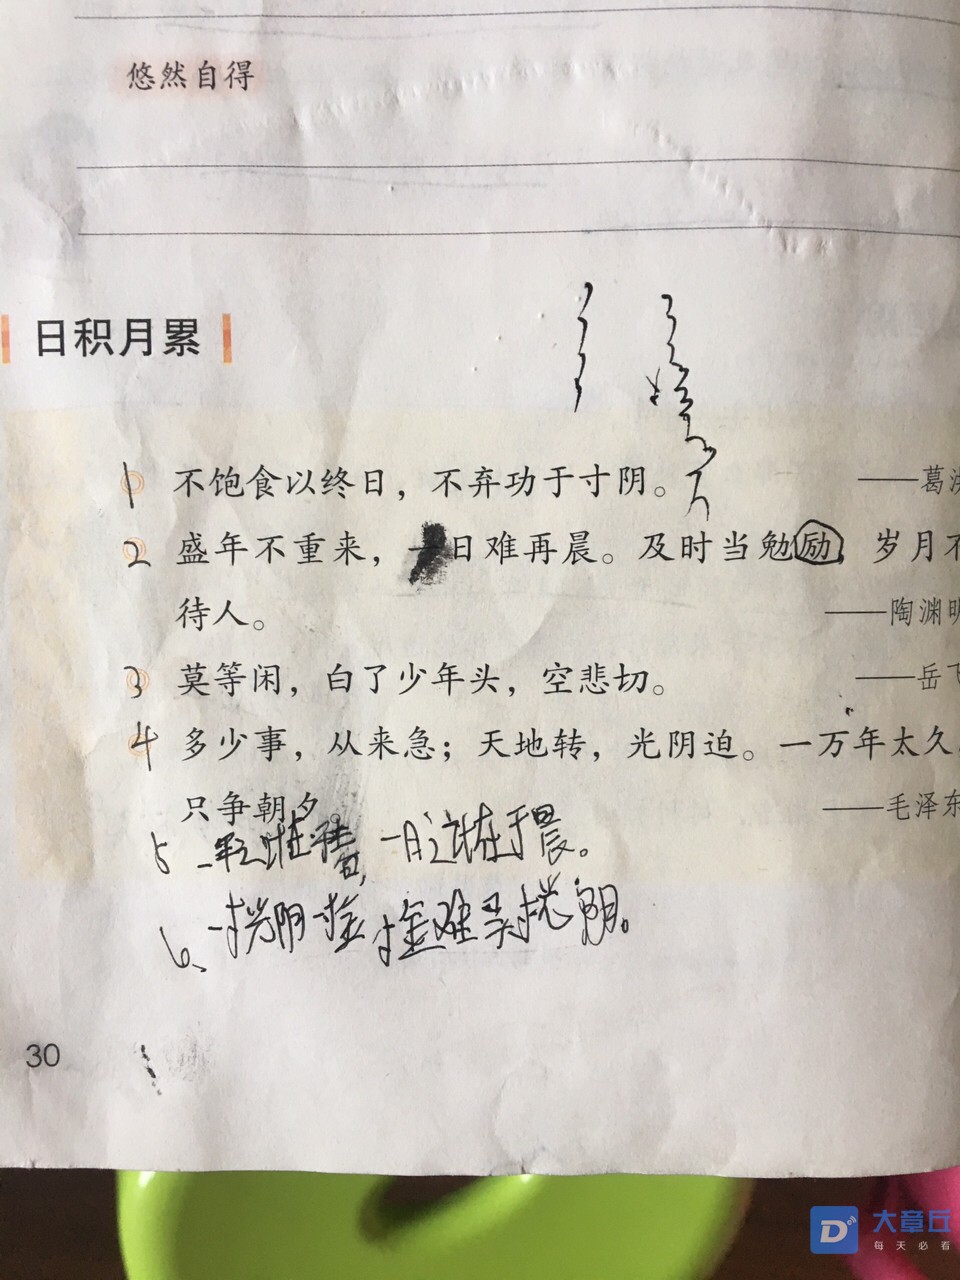 悠然自得
日积月累
1 不饱食以终日，不弃功于寸阴。 ——葛洪
2 盛年不重来，一日难再晨。及时当勉励，岁月不
待人。 ——陶渊明
3 莫等闲，白了少年头，空悲切。 ——岳飞
4 多少事，从来急；天地转，光阴迫。一万年太久，
只争朝夕。 ——毛泽东
5 一年之计在于春，一日之计在于晨。
6、一寸光阴一寸金，寸金难买寸光阴。
30
D
大章丘
每天必看